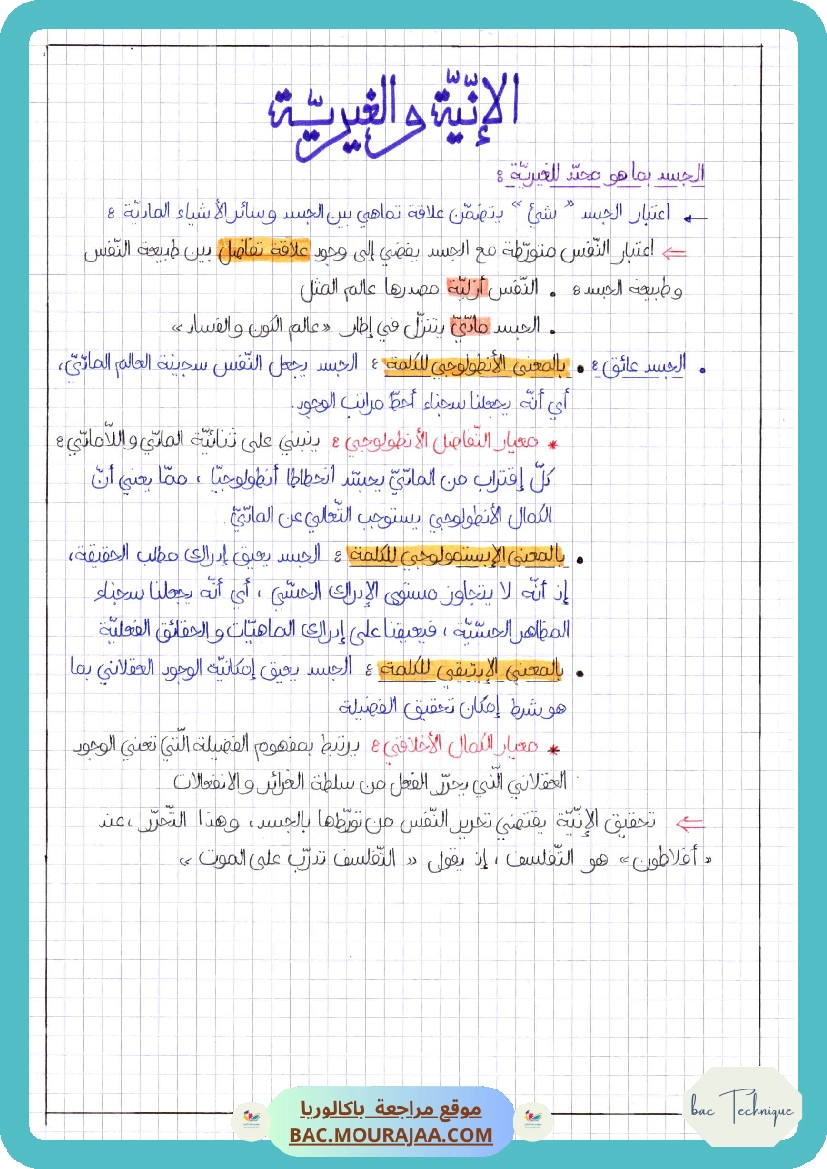 الإنّيّة والغيريّة
الجسد بما هو محدّد للغيريّة :
← اعتبار الجسد "شيئ" يتضمّن علاقة تماهي بين الجسد وسائر الأشياء الماديّة :
⇐ اعتبار النّفس متورّطة مع الجسد يفضي إلى وجود علاقة تفاضل بين طبيعة النّفس
وطبيعة الجسد : • النّفس أزليّة مصدرها عالم المثل
• الجسد مادّيّ يتنزّل في إطار «عالم الكون والفساد»
• الجسد عائق : • بالمعنى الأنطولوجي للكلمة : الجسد يجعل النّفس سجينة العالم المادّيّ،
أي أنّه يجعلنا سجناء أحطّ مراتب الوجود.
* معيار التّفاضل الأنطولوجي : ينبني على ثنائيّة المادّي واللاّمادّي :
كلّ إقتراب من المادّيّ يجسّد انحطاطا أنطولوجيّا ، ممّا يعني أنّ
الكمال الأنطولوجي يستوجب التّعالي عن المادّيّ.
• بالمعنى الإبستمولوجي للكلمة : الجسد يعيق إدراك مطلب الحقيقة،
إذ أنّه لا يتجاوز مستوى الإدراك الحسّي ، أي أنّه يجعلنا سجناء
المظاهر الحسّيّة ، فيعيقنا على إدراك الماهيّات والحقائق الفعليّة
• بالمعنى الإيتيقي للكلمة : الجسد يعيق إمكانيّة الوجود العقلاني بما
هو شرط إمكان تحقيق الفضيلة
* معيار الكمال الأخلاقي : يرتبط بمفهوم الفضيلة الّتي تعني الوجود
العقلاني الّذي يحرّر الفعل من سلطة الغرائز والانفعالات
⇐ تحقيق الإنّيّة يقتضي تحرير النّفس من تورّطها بالجسد، وهذا التّحرّر ،عند
«أفلاطون» هو التّفلسف ، إذ يقول « التّفلسف تدرّب على الموت »
موقع مراجعة باكالوريا
BAC.MOURAJAA.COM
bac Technique